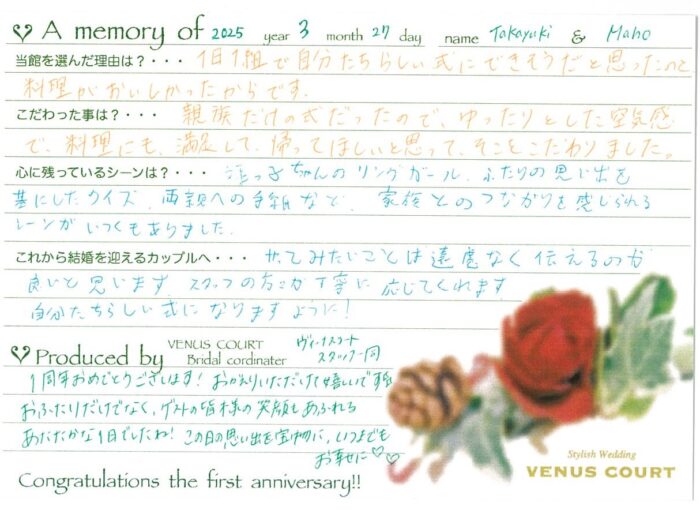 A memory of 2025 year 3 month 27 day name Takayuki & Maho
当館を選んだ理由は？・・・ 1日1組で自分たちらしい式にできそうだと思ったのと
料理がおいしかったからです。
こだわった事は？・・・ 親族だけの式だったので、ゆったりとした空気感
で、料理にも、満足して、帰ってほしいと思って、そこをこだわりました。
心に残っているシーンは？・・・ 姪っ子ちゃんのリングガール、ふたりの思い出を
基にしたクイズ、両親への手紙など、家族とのつながりを感じられる
シーンがいくつもありました。
これから結婚を迎えるカップルへ・・・ やってみたいことは遠慮なく伝えるのが
良いと思います。スタッフの方々が丁寧に応じてくれます。
自分たちらしい式になりますように！
Produced by VENUS COURT Bridal cordinater ヴィーナスコート スタッフ一同
1周年おめでとうございます！おかえりいただけて嬉しいです
おふたりだけでなく、ゲストの皆様の笑顔もあふれる
あたたかな1日でしたね！この日の思い出を宝物に、いつまでも
お幸せに♡♡
Congratulations the first anniversary!!
Stylish Wedding
VENUS COURT